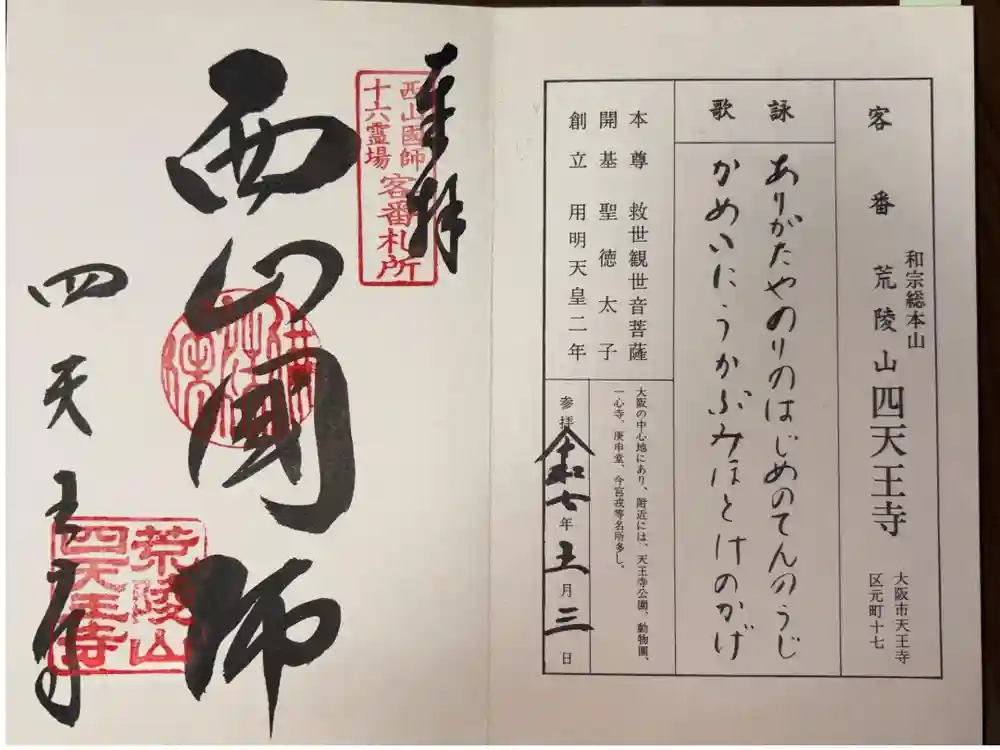 客番
和宗総本山
荒陵山 四天王寺
大阪市天王寺
区元町十七
詠歌
ありがたやのりのはじめのてんのうじ
かめいにうかぶみほとけのかげ
本尊 救世観世音菩薩
開基 聖徳太子
創立 用明天皇二年
大阪の中心地にあり、附近には、天王寺公園、動物園、
一心寺、庚申堂、今宮戎等名所多し。
参拝 令和七年 五月 三日
奉拝
西山國師
十六霊場
客番札所
西山國師
四天王寺
荒陵山
四天王寺